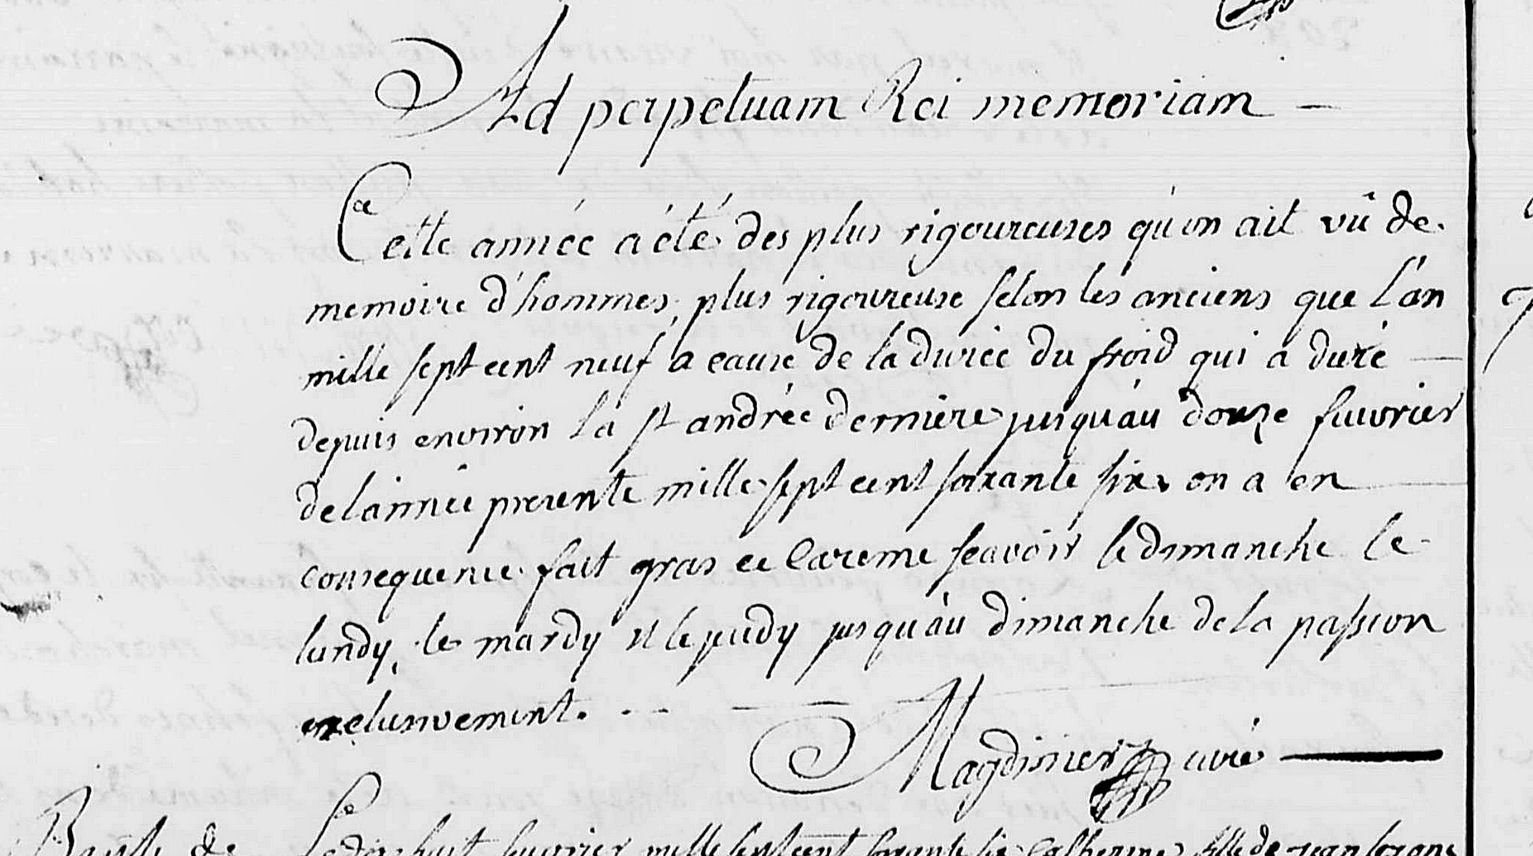 Ad perpetuam Rei memoriam —
Cette année a été des plus rigoureuses qu'on ait vû de
memoire d'hommes, plus rigoureuse selon les anciens que l'an
mille sept cent neuf a cause de la durée du froid qui a duré
depuis environ la st andrée derniere jusqu'au douze fuvrier
de lannée presente mille sept cent soixante six on a en
consequence fait gras ce Careme scavoir le dimanche le
lundy, le mardy et le jeudy jusqu'au dimanche de la passion
exclusivement.
Magdinier curé
Bapt de Le dix huit fuvrier mille sept cent soixante six Catherine fille de jean